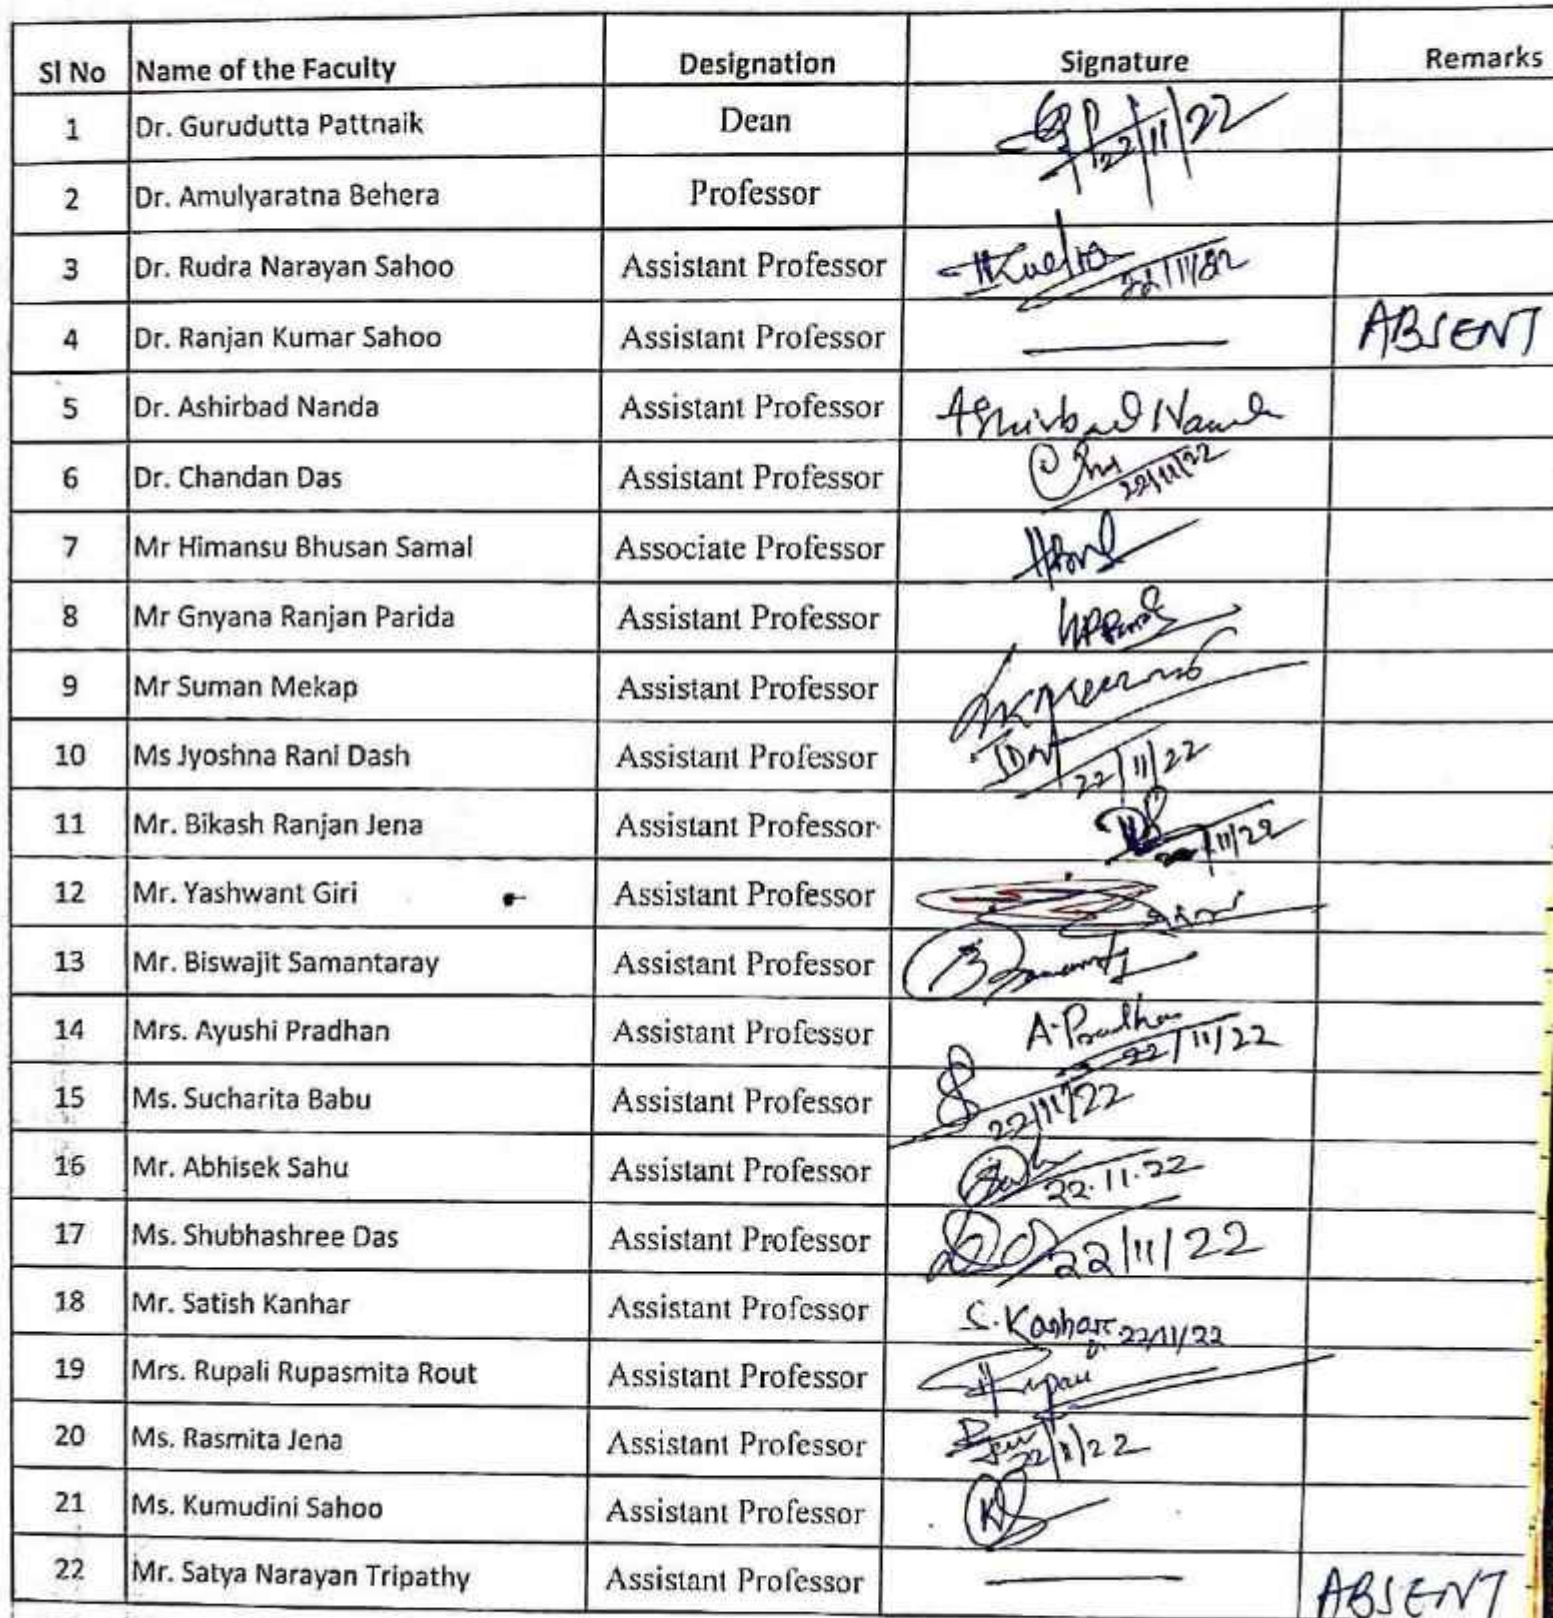 Sl No Name of the Faculty Designation Signature Remarks
1 Dr. Gurudutta Pattnaik Dean 22/11/22
2 Dr. Amulyaratna Behera Professor
3 Dr. Rudra Narayan Sahoo Assistant Professor 22/11/22
4 Dr. Ranjan Kumar Sahoo Assistant Professor ABSENT
5 Dr. Ashirbad Nanda Assistant Professor Ashirbad Nanda
6 Dr. Chandan Das Assistant Professor 22/11/22
7 Mr Himansu Bhusan Samal Associate Professor
8 Mr Gnyana Ranjan Parida Assistant Professor
9 Mr Suman Mekap Assistant Professor
10 Ms Jyoshna Rani Dash Assistant Professor 22/11/22
11 Mr. Bikash Ranjan Jena Assistant Professor 22/11/22
12 Mr. Yashwant Giri Assistant Professor
13 Mr. Biswajit Samantaray Assistant Professor
14 Mrs. Ayushi Pradhan Assistant Professor A.Pradhan 22/11/22
15 Ms. Sucharita Babu Assistant Professor 22/11/22
16 Mr. Abhisek Sahu Assistant Professor 22.11.22
17 Ms. Shubhashree Das Assistant Professor 22/11/22
18 Mr. Satish Kanhar Assistant Professor S. Kanhar 22/11/22
19 Mrs. Rupali Rupasmita Rout Assistant Professor Rupali
20 Ms. Rasmita Jena Assistant Professor 22/11/22
21 Ms. Kumudini Sahoo Assistant Professor
22 Mr. Satya Narayan Tripathy Assistant Professor ABSENT